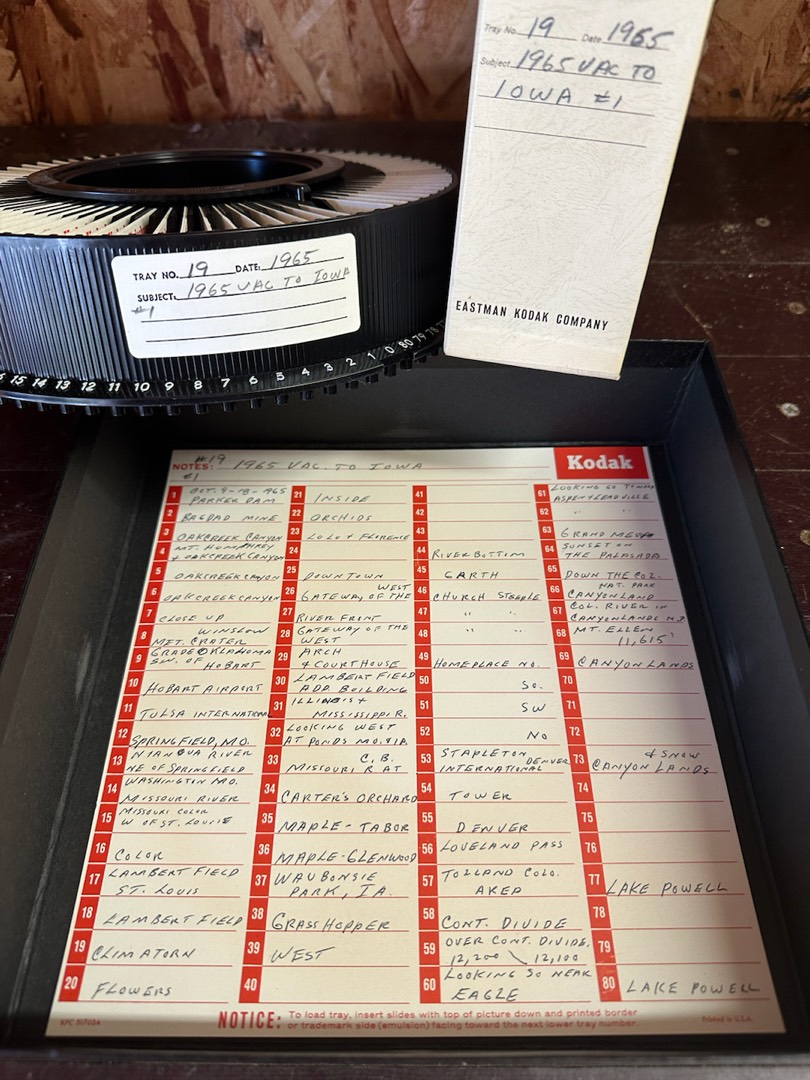 Tray No. 19 Date 1965
Subject 1965 VAC TO
IOWA #1
EASTMAN KODAK COMPANY
TRAY NO. 19 DATE: 1965
SUBJECT: 1965 VAC TO IOWA
#1
15 14 13 12 11 10 9 8 7 6 5 4 3 2 1 0 80 79 78
#19
NOTES: 1965 VAC. TO IOWA
#1
Kodak
1 OCT. 9-19-1965
PARKER DAM
2 BAGDAD MINE
3 OAKCREEK CANYON
4 MT. HUMPHREY
+ OAKCREEK CANYON
5 OAKCREEK CANYON
6 OAKCREEK CANYON
7 CLOSE UP
8 WINSLOW
MET. CRATER
9 GRADE OKLAHOMA
SW. OF HOBART
10 HOBART AIRPORT
11 TULSA INTERNATIONAL
12 SPRINGFIELD, MO.
13 NIANGUA RIVER
NE OF SPRINGFIELD
14 WASHINGTON MO.
MISSOURI RIVER
15 MISSOURI COLOR
W OF ST. LOUIS
16 COLOR
17 LAMBERT FIELD
ST. LOUIS
18 LAMBERT FIELD
19 CLIMATORN
20 FLOWERS
21 INSIDE
22 ORCHIDS
23 LOLO + FLORENCE
24
25 DOWNTOWN
26 WEST
GATEWAY OF THE
27 RIVER FRONT
28 GATEWAY OF THE
WEST
29 ARCH
+ COURTHOUSE
30 LAMBERT FIELD
ADD. BUILDING
31 ILLINOIS +
MISSISSIPPI R.
32 LOOKING WEST
AT PONDS MO. + IA.
33 C.B.
MISSOURI R AT
34 CARTER'S ORCHARD
35 MAPLE - TABOR
36 MAPLE - GLENWOOD
37 WAUBONSIE
PARK, IA.
38 GRASSHOPPER
39 WEST
40
41
42
43
44 RIVER BOTTOM
45 EARTH
46 CHURCH STEEPLE
47 " "
48 " "
49 HOMEPLACE NO.
50 SO.
51 SW
52 NO
53 STAPLETON DENVER
INTERNATIONAL
54 TOWER
55 DENVER
56 LOVELAND PASS
57 TOLLAND COLO.
AREP
58 CONT. DIVIDE
59 OVER CONT. DIVIDE,
12,200 \ 12,100
60 LOOKING SO NEAR
EAGLE
61 LOOKING SO TOWARD
ASPEN + LEADVILLE
62 " "
63 GRAND MESA
64 SUNSET ON
THE PALASADES
65 DOWN THE COL.
66 NAT. PARK
CANYONLAND
67 COL. RIVER IN
CANYONLANDS N.P.
68 MT. ELLEN
11,615'
69 CANYON LANDS
70
71
72
73 + SNOW
CANYON LANDS
74
75
76
77 LAKE POWELL
78
79
80 LAKE POWELL
NOTICE: To load tray, insert slides with top of picture down and printed border
or trademark side (emulsion) facing toward the next lower tray number.
Printed in U.S.A.